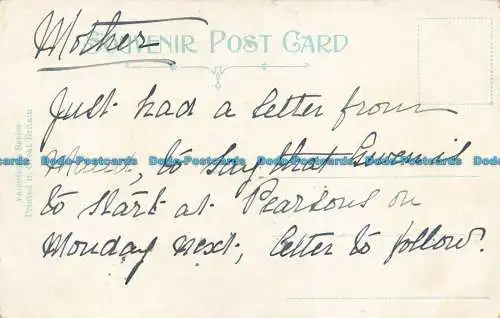 SOUVENIR POST CARD
Mother
Just had a letter from
Maud, to say that Gwen is
to start at Pearsons on
Monday next, letter to follow.
Dodo-Postcards Dodo-Postcards Dodo-Postcards Dodo-Postcards
Printed in Great Britain